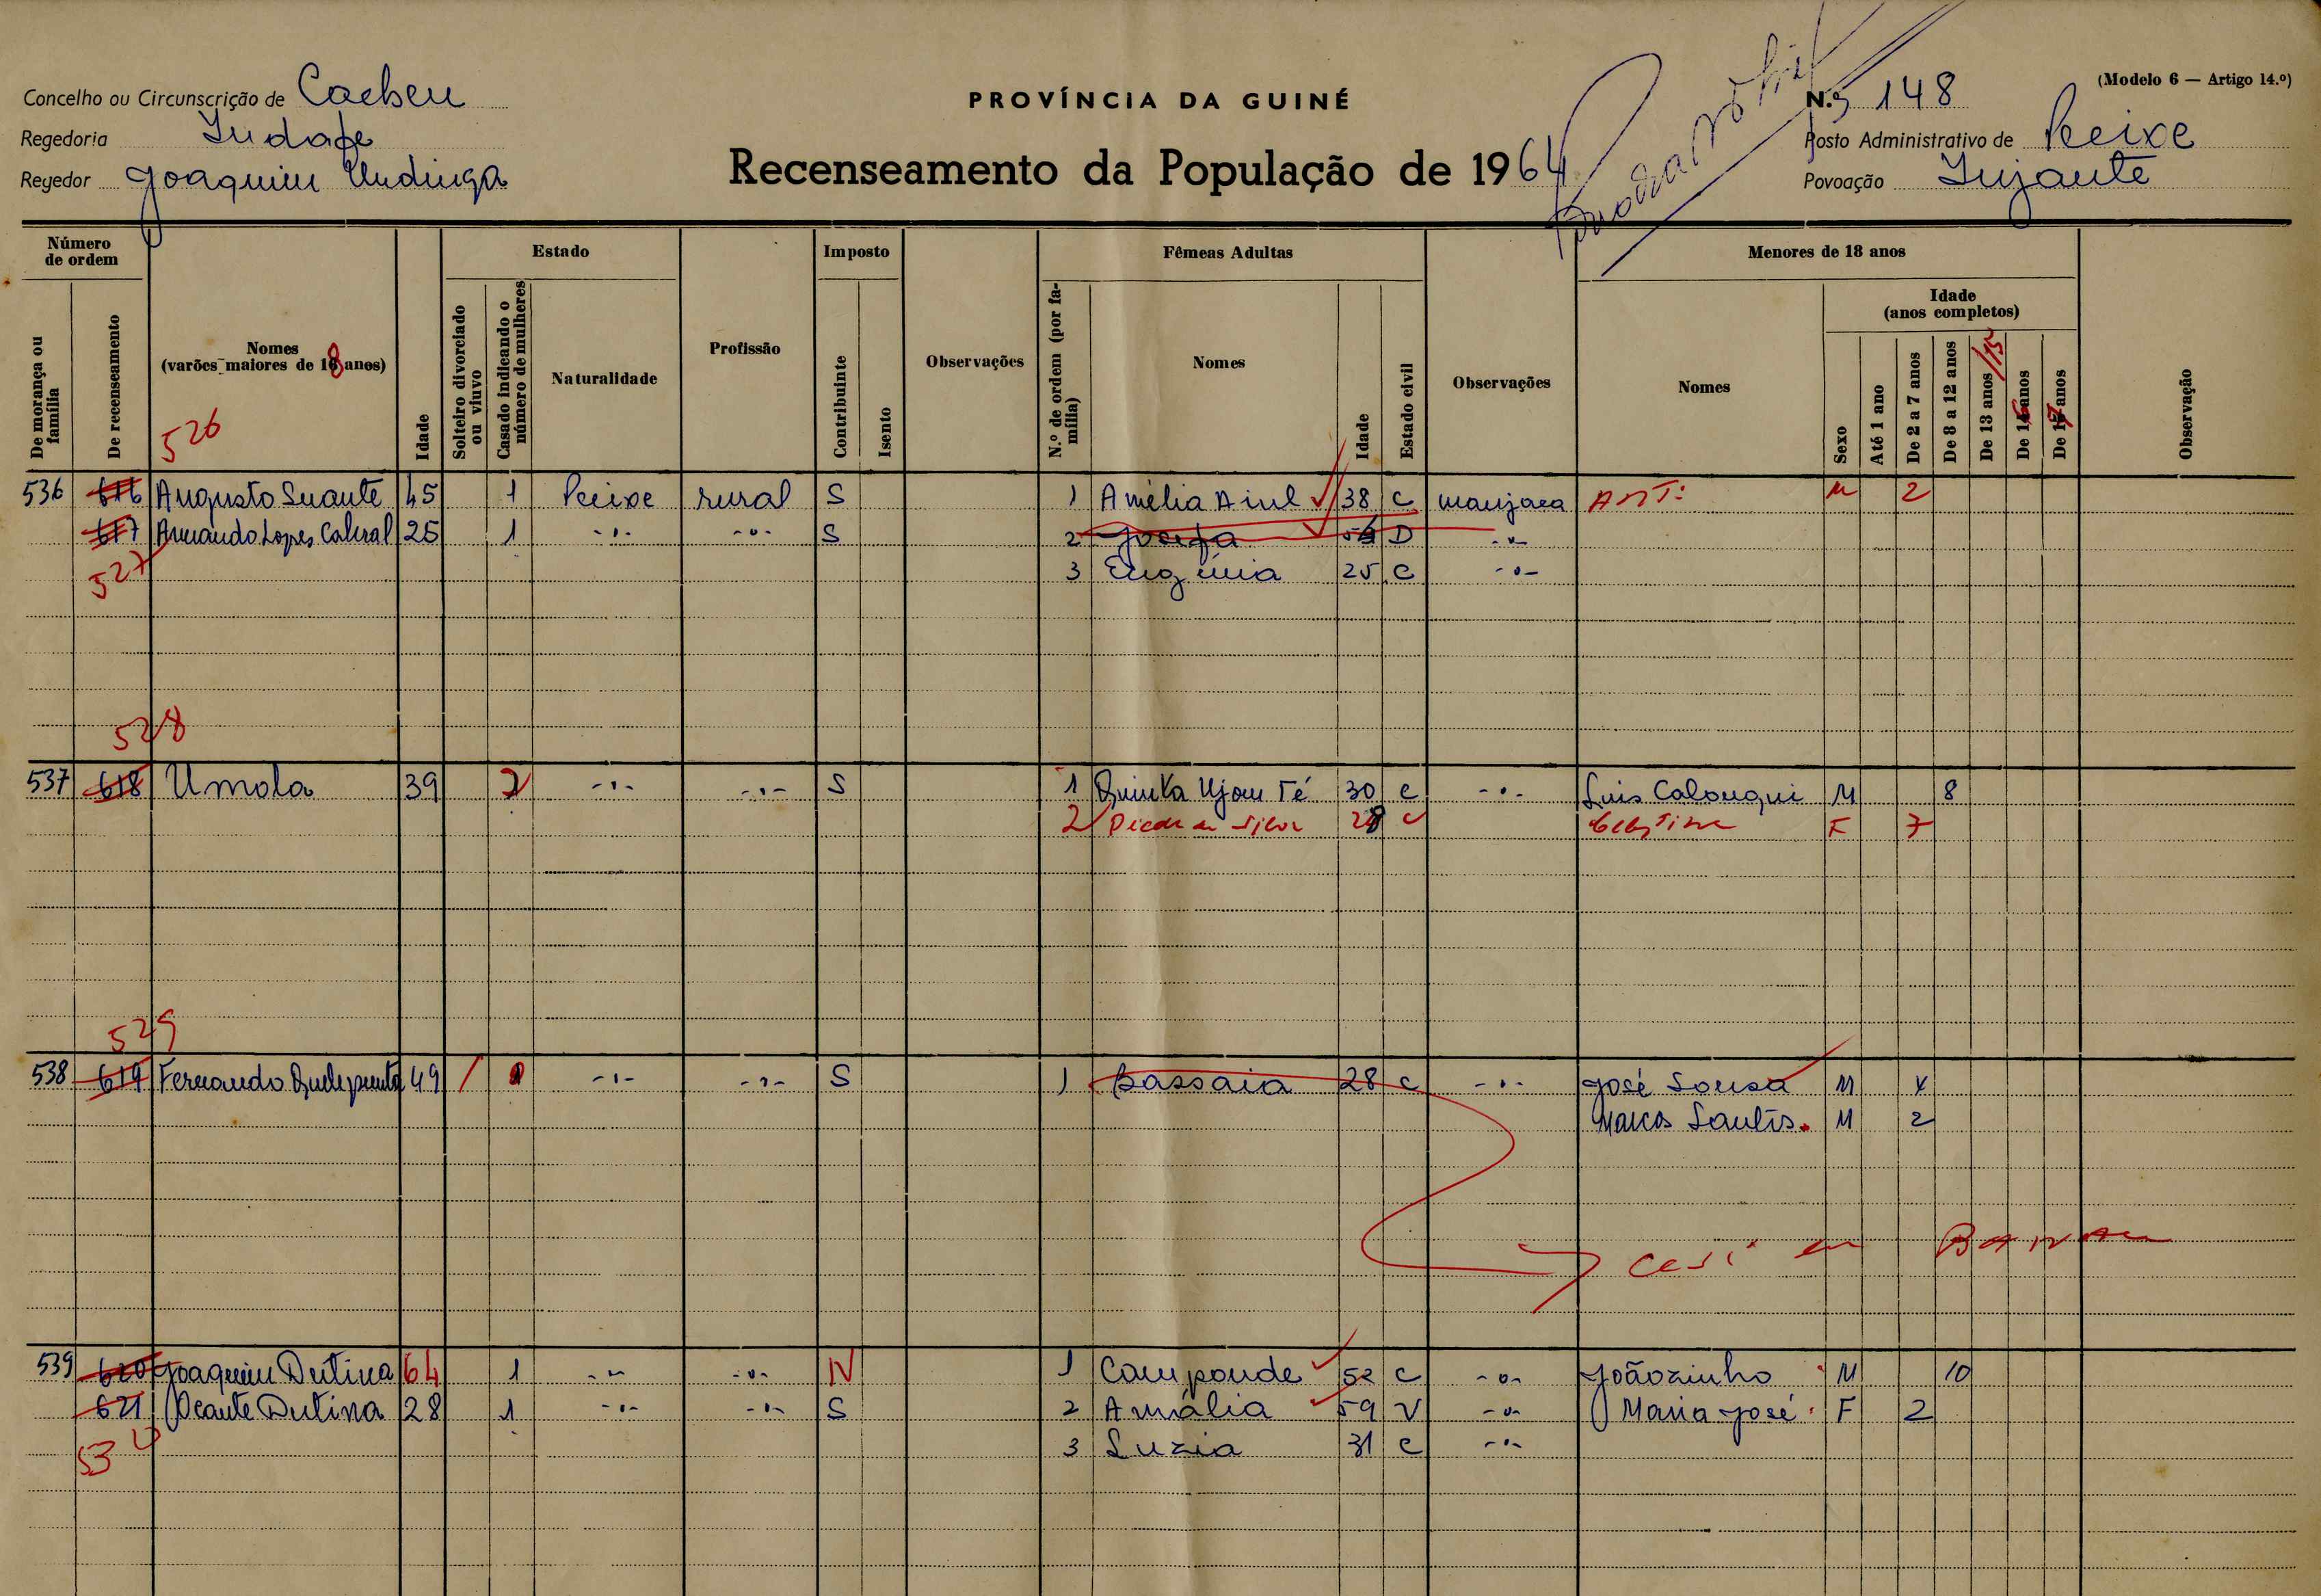 (Modelo 6 — Artigo 14.º)
Concelho ou Circunscrição de Cacheu
PROVÍNCIA DA GUINÉ
N.º 148
Regedoria Indafe
Posto Administrativo de Peixe
Regedor Joaquim Undinga
Recenseamento da População de 1964
Povoação Jujante
Número de ordem
Estado
Imposto
Fêmeas Adultas
Menores de 18 anos
De morança ou família
De recenseamento
Nomes (varões maiores de 18 anos)
Idade
Solteiro divorciado ou viuvo
Casado indicando o número de mulheres
Naturalidade
Profissão
Contribuinte
Isento
Observações
N.º de ordem (por família)
Nomes
Idade
Estado civil
Observações
Nomes
Sexo
Idade (anos completos)
Até 1 ano
De 2 a 7 anos
De 8 a 12 anos
De 13 anos /15
De 16 anos
De 17 anos
Observação
526
536 616 Augusto Suante 45 1 Peixe rural S 1 Amélia 38 C manjaca M 2
617 Armando Lopes Cabral 25 1 -"- -"- S 2 Josefa D -"-
527 3 Eugénia 25 C -"-
528
537 618 Umola 39 2 -"- -"- S 1 Quinta Ujam Té 30 C -"- Luis Calouqui M 8
2 28 C Celestina F 7
529
538 619 Fernando 49 / -"- -"- S 1 Bassaia 28 C -"- José Sousa M
Marcos Santos M 2
539 620 Joaquim Dutina 64 1 -"- -"- N 1 Camponde 52 C -"- Joãozinho M 10
621 Ocante Dutina 28 1 -"- -"- S 2 Amália 59 V -"- Maria José F 2
530 3 Luzia 31 C -"-